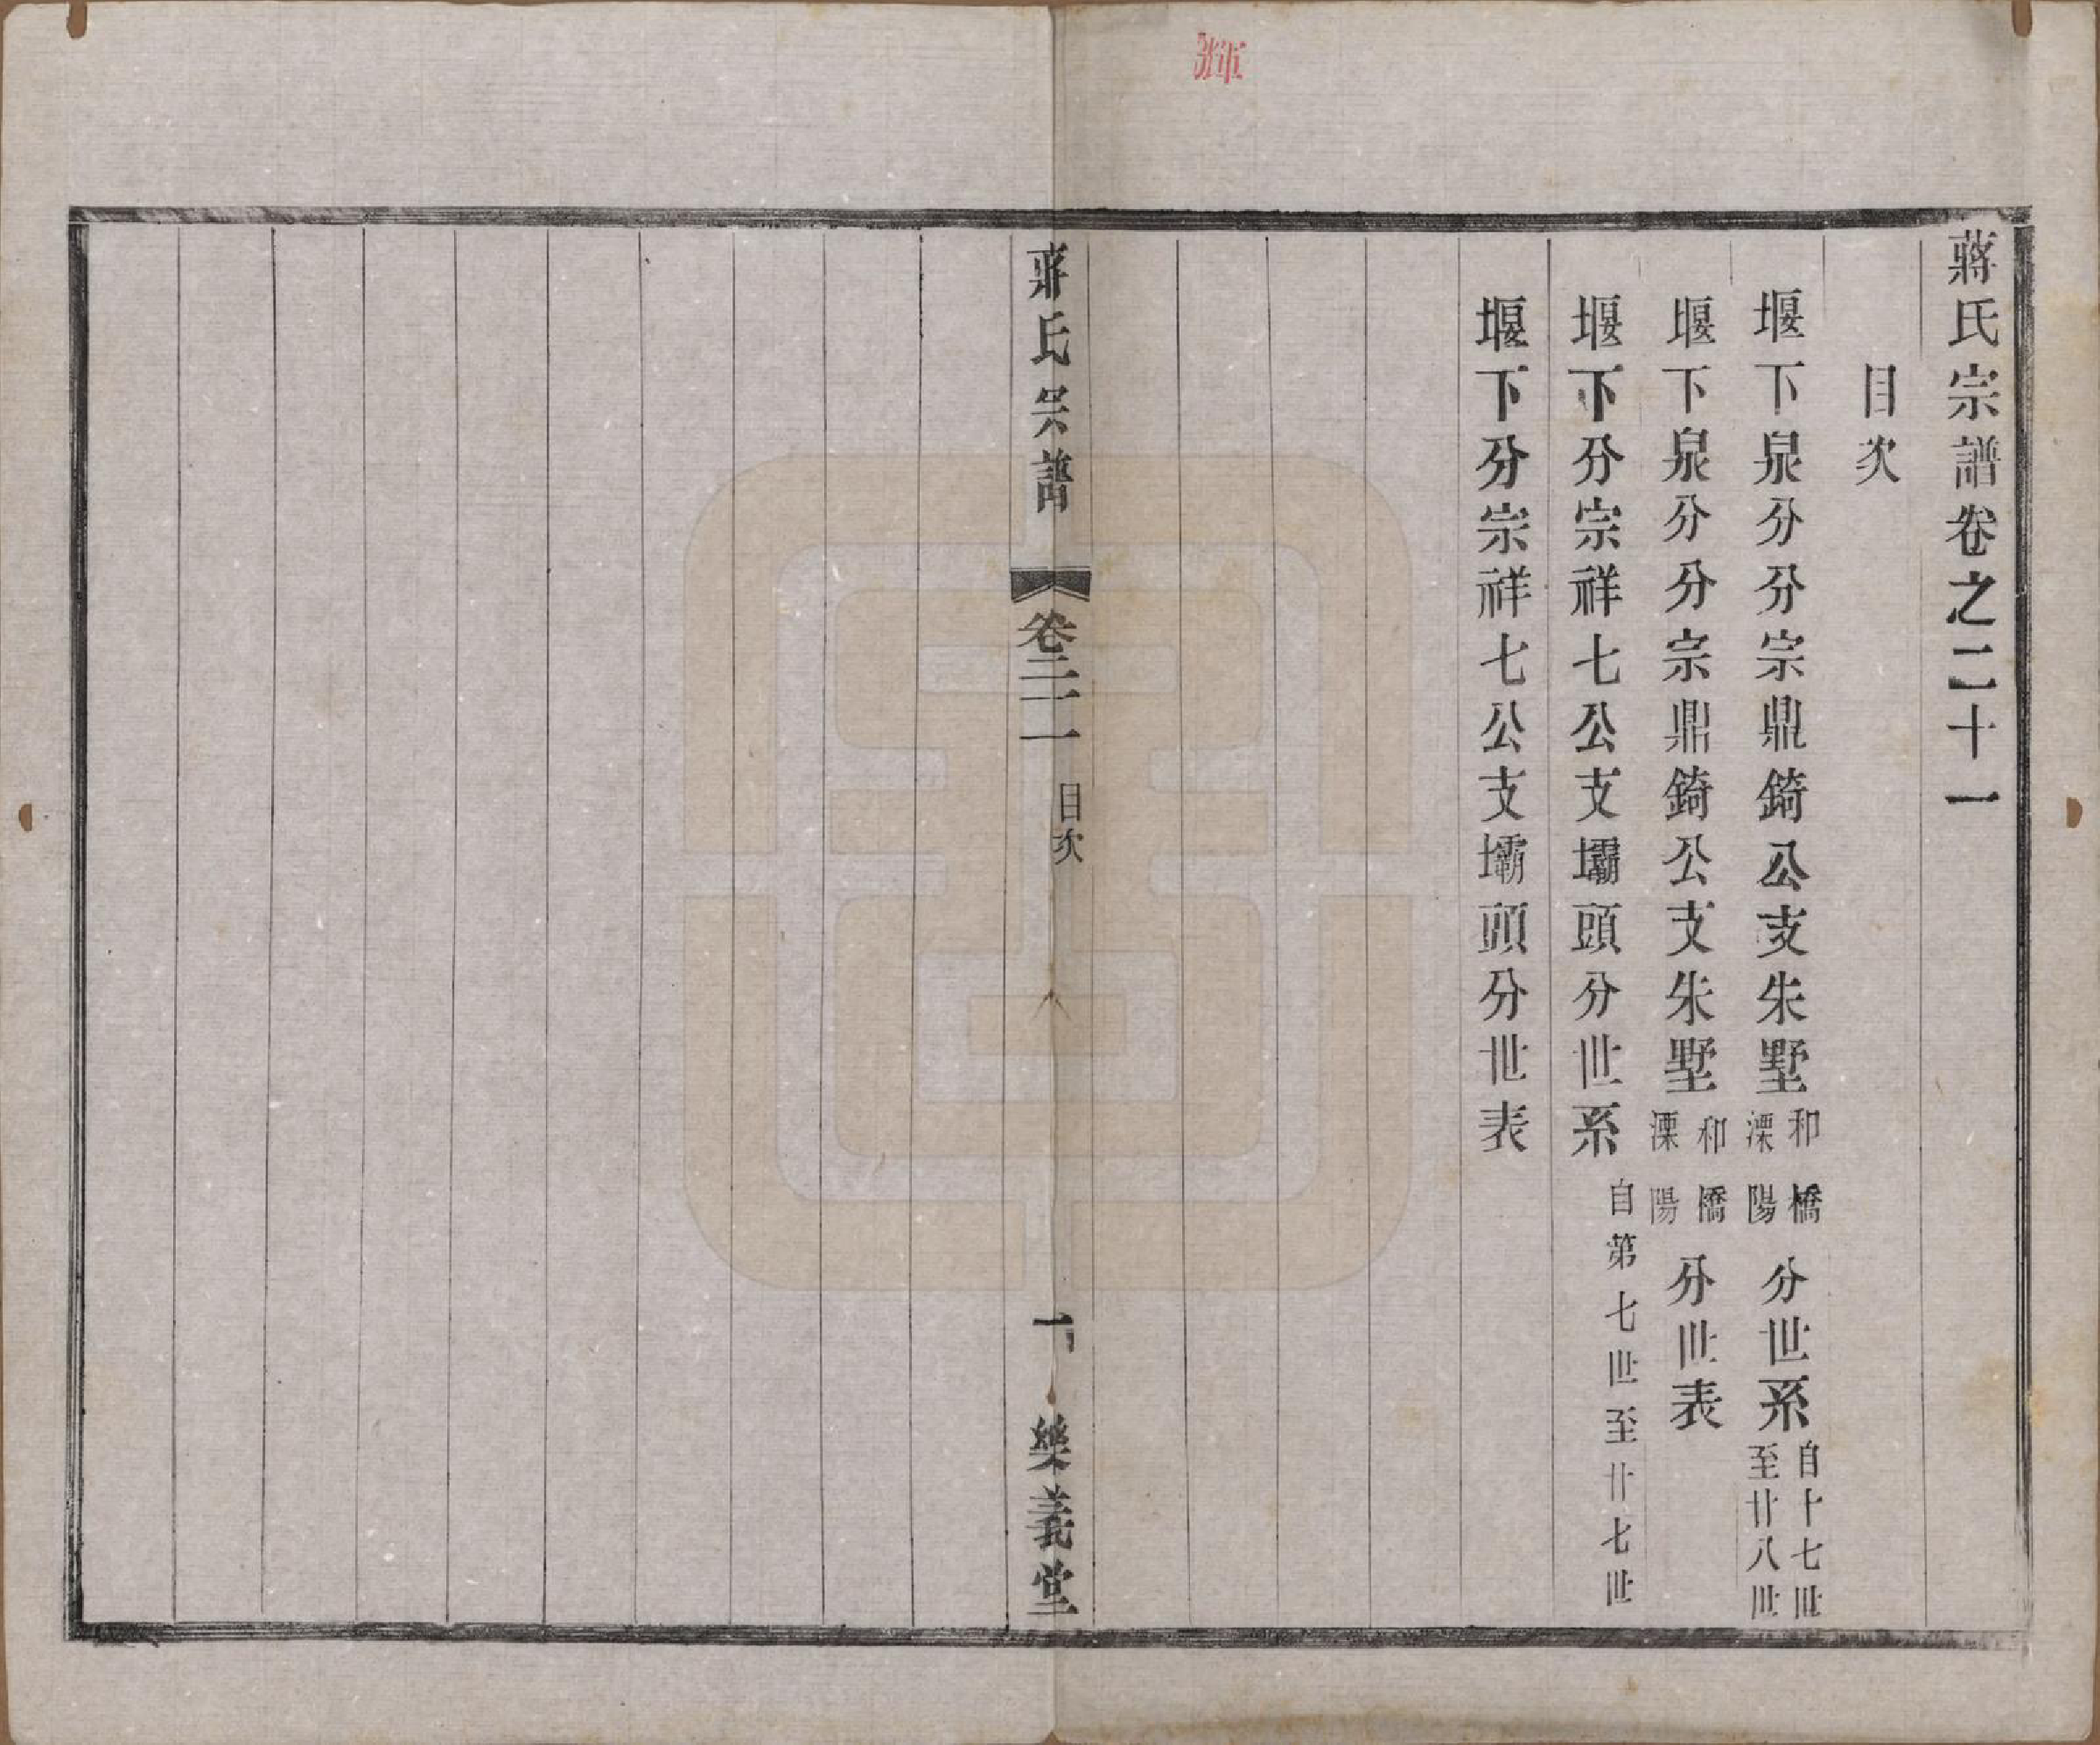 輝
蔣氏宗譜卷之二十一
目次
堰下泉分分宗鼎錡公支朱墅和橋溧陽分世系自十七世至廿八世
堰下泉分分宗鼎錡公支朱墅和橋溧陽分世表
堰下分宗祥七公支壩頭分世系自第七世至廿七世
堰下分宗祥七公支壩頭分世表
蔣氏宗譜 卷二十一 目次 一 樂義堂